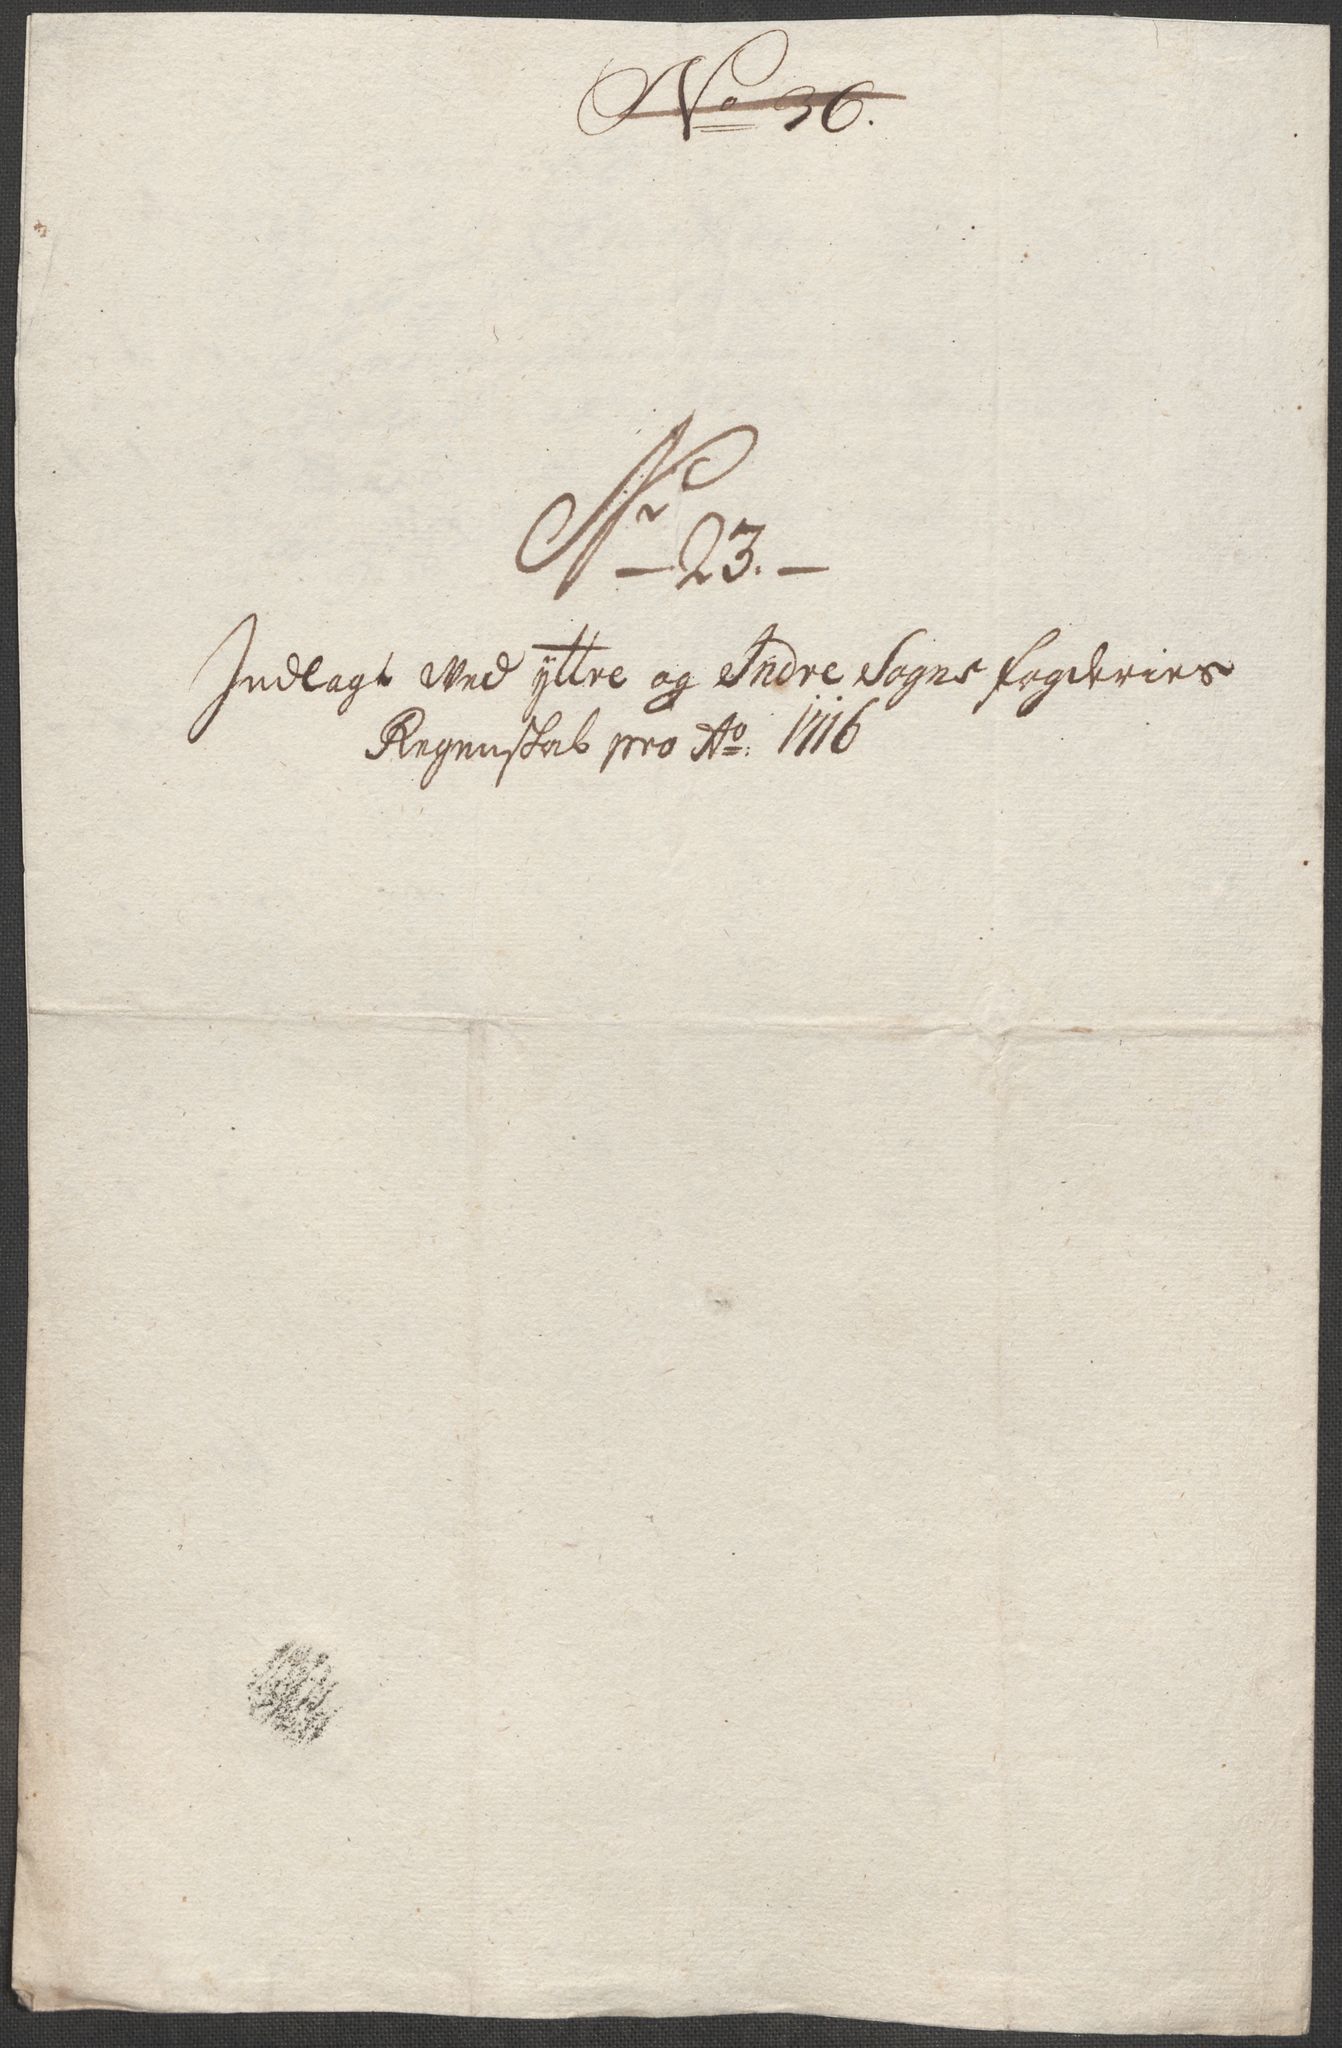 No 36.
Nr 23.
Indlagt Ved ÿttre og Indre Sogns fogderies
Regenskab pro Ao: 1716